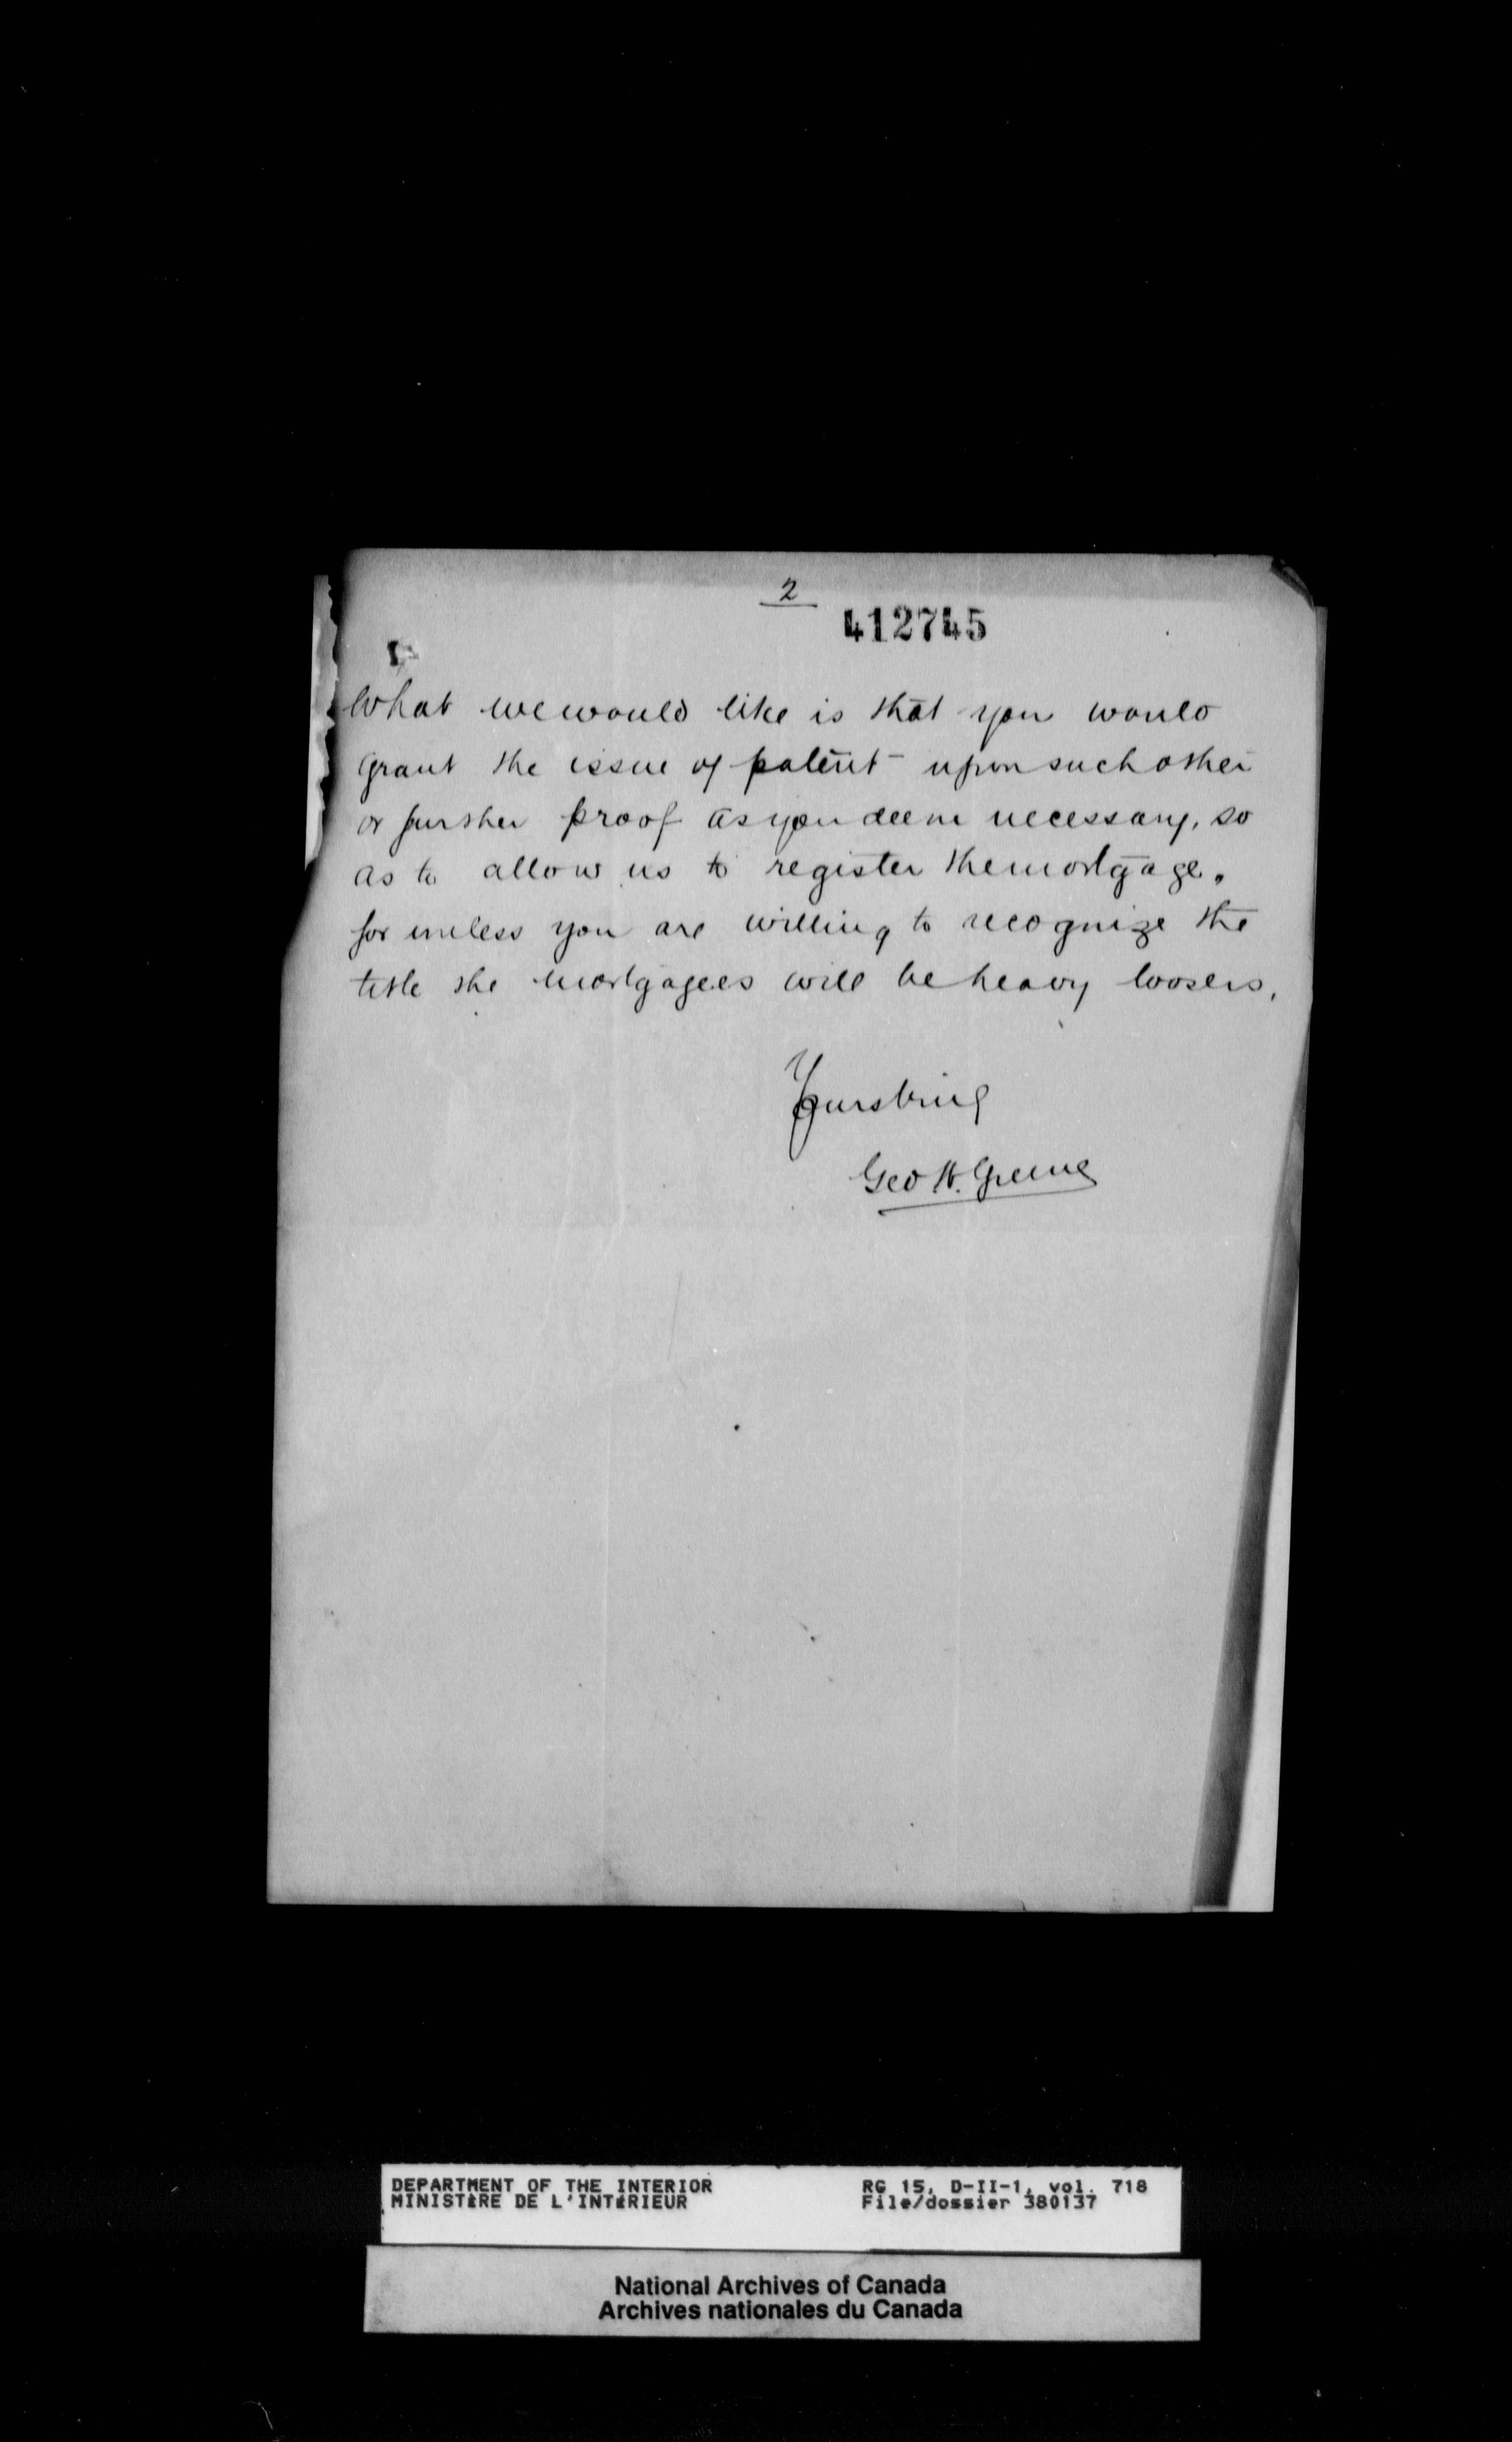 2
412745
What we would like is that you would
grant the issue of patent upon such other
or further proof as you deem necessary, so
as to allow us to register the mortgage.
for unless you are willing to recognize the
title the mortgagees will be heavy loosers.
Yours truly
Geo H. Greene
DEPARTMENT OF THE INTERIOR RG 15, D-II-1, vol. 718
MINISTÈRE DE L'INTÉRIEUR File/dossier 380137
National Archives of Canada
Archives nationales du Canada